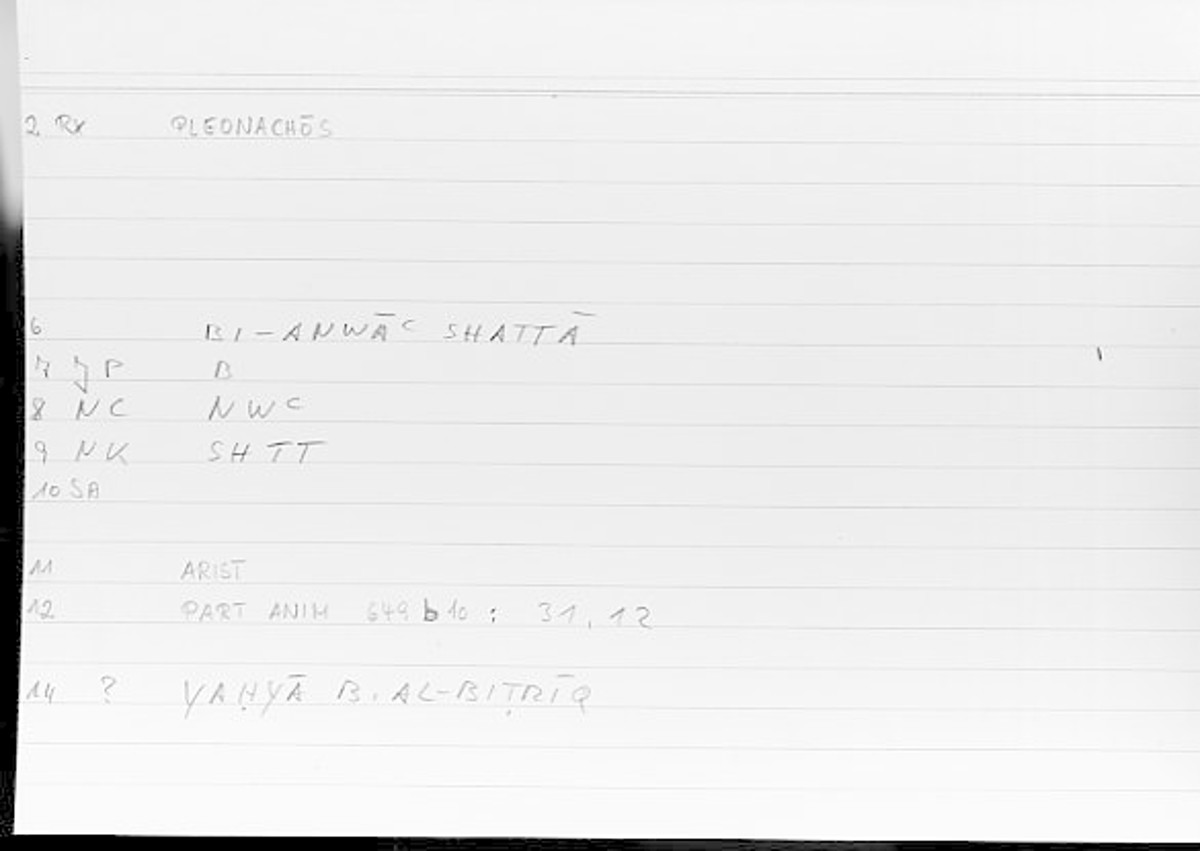 2 Rx PLEONACHŌS
6 BI-ANWĀC SHATTĀ
7 JP B
8 NC NWC
9 NK SHTT
10 SA
11 ARIST
12 PART ANIM 649 b 10 : 31, 12
14 ? YAḤYĀ B. AL-BIṬRĪQ